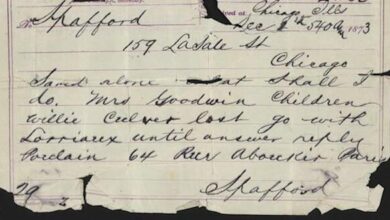 Spafford Chicago Ills
Dec 540 1873
159 LaSale St
Chicago
Saved alone at shall I
do. Mrs Goodwin Children
Willie Culver lost go with
Lorriaux until answer reply
Porclain 64 Rue Aboukir Paris
Spafford
29